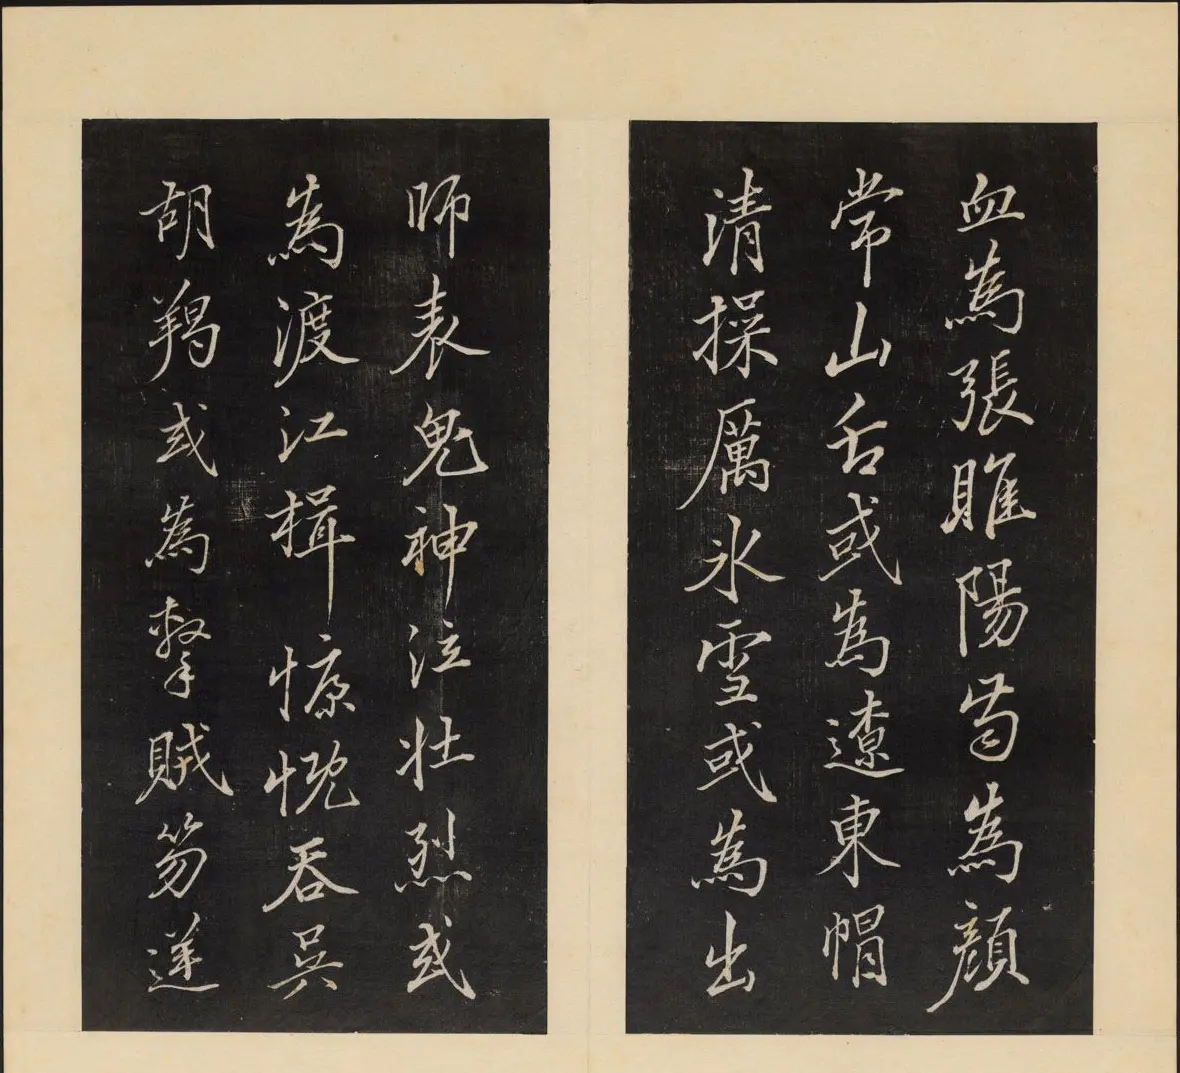 血為張睢陽齒為顏
常山舌或為遼東帽
清操厲氷雪或為出
師表鬼神泣壯烈或
為渡江楫慷慨吞吳
胡羯或為擊賊笏逆